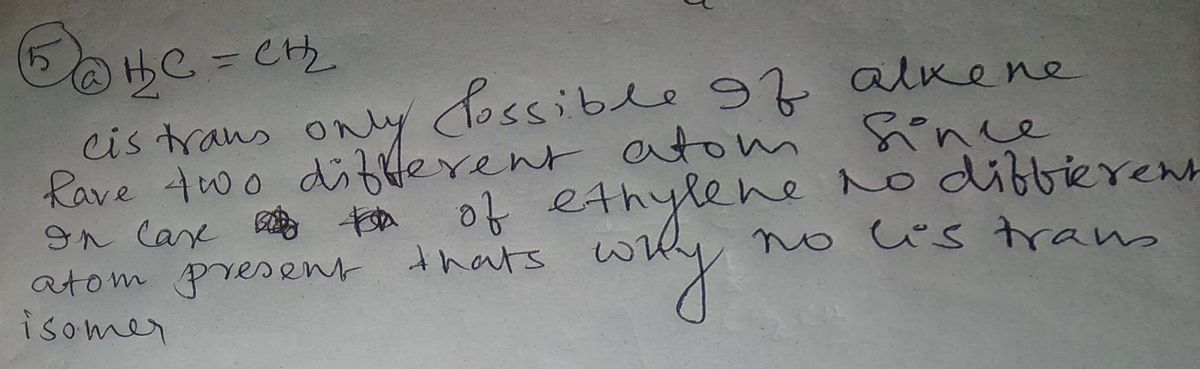 5 a H2C = CH2
cis trans only possible If alkene
have two different atom Since
In case of ethylene no diffierent
atom present thats why no cis trans
isomer